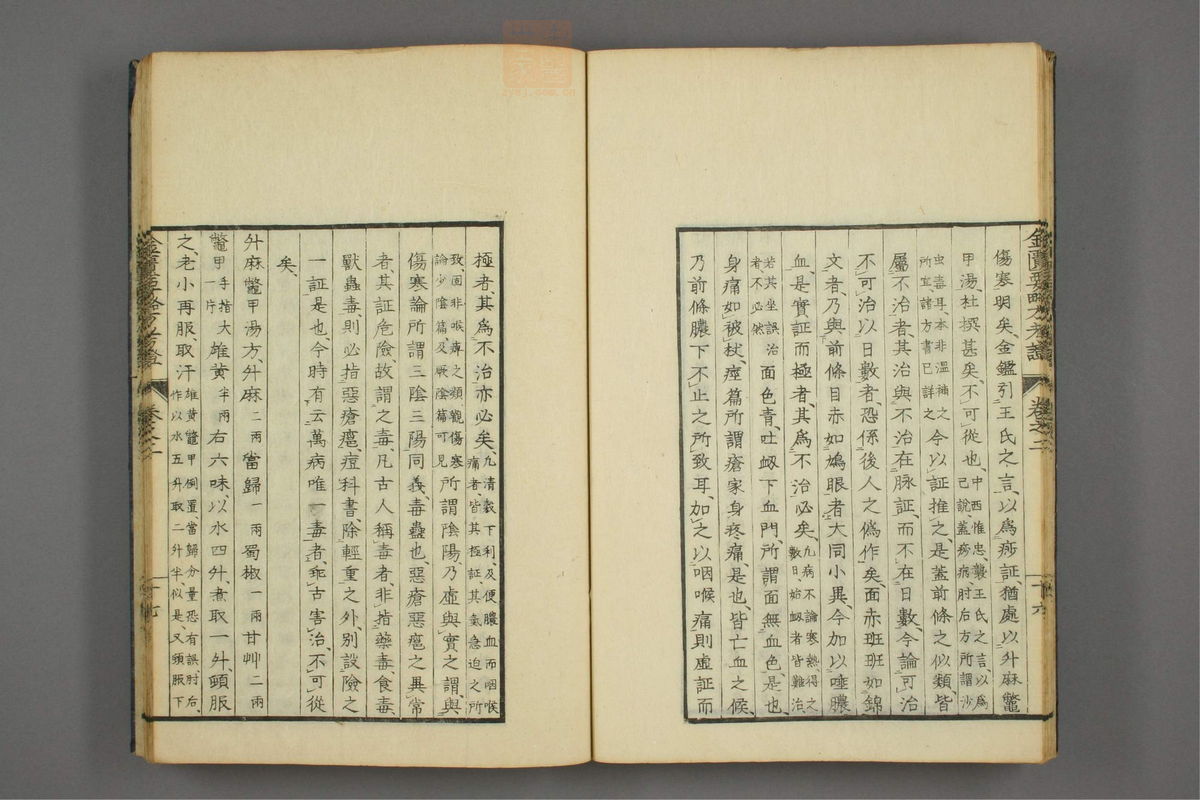 傷寒明矣、金鑑引王氏之言、以爲痧証、猶處以升麻鼈
甲湯、杜撰甚矣、不可從也、中西惟忠、襲王氏之言、以爲
已說、蓋痧病、肘后方所謂沙
虫毒耳、本非溫補之
所宜、諸方書已詳之
今以証推之、是蓋前條之似類、皆
屬不治者、其治與不治在脉証、而不在日數、今論可治
不可治以日數者、恐係後人之僞作矣、面赤班班如錦
文者、乃與前條目赤如鳩眼者大同小異、今加以唾膿
血、是實証而極者、其爲不治必矣、凡病不論寒熱、得之
數日、始衂者皆難治、
若其坐誤治
者不必然
面色青、吐衂下血門、所謂面無血色是也、
身痛如被杖、痙篇所謂瘡家身疼痛、是也、皆亡血之候、
乃前條膿下不止之所致耳、加之以咽喉痛、則虛証而
極者、其爲不治亦必矣、凡清穀下利、及便膿血而咽喉
痛者、皆其極証、其氣急迫之所
致、固非喉痺之類、觀傷寒
論少陰篇、及厥陰篇可見
所謂陰陽、乃虛與實之謂、與
傷寒論所謂三陰三陽同義、毒蠱也、惡瘡惡瘟之異常
者、其証危險、故謂之毒、凡古人稱毒者、非指藥毒食毒、
獸蟲毒、則必指惡瘡瘟、痘科書、除輕重之外、別設險之
一証是也、今時有云萬病唯一毒者、乖古害治、不可從
矣、
升麻鼈甲湯方、升麻二兩當歸一兩蜀椒一兩甘艸二兩
鼈甲手指大一片雄黃半兩右六味、以水四升、煮取一升、頓服
之、老小再服、取汗雄黃鼈甲倒置、當歸分量恐有誤、肘后、
作以水五升取二升半、似是、又頓服下
金匱要略方考證
卷之二
十六
卷之二
十七